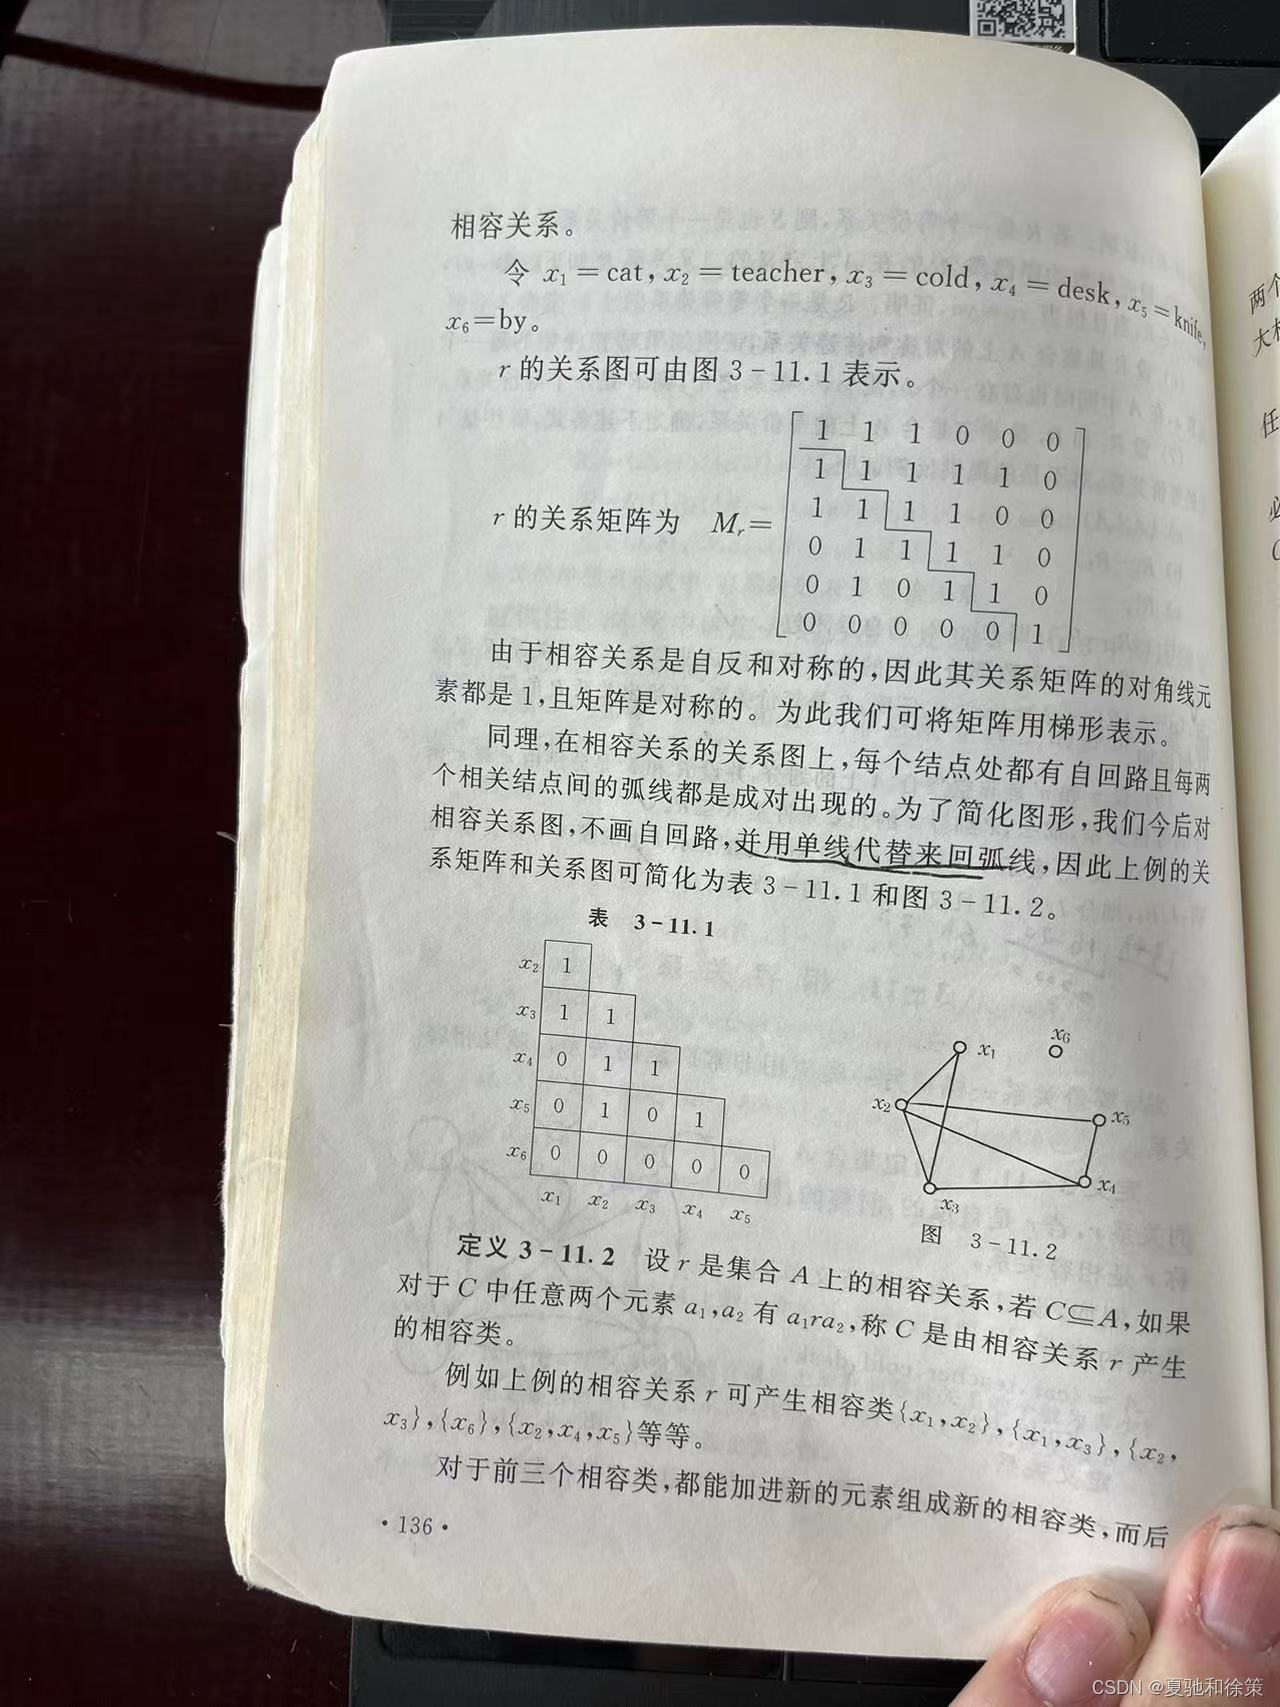 相容关系。
令 x₁ = cat, x₂ = teacher, x₃ = cold, x₄ = desk, x₅ = knife,
x₆=by。
r 的关系图可由图 3-11.1 表示。
1 1 1 0 0 0
1 1 1 1 1 0
r 的关系矩阵为 Mᵣ= 1 1 1 1 0 0
0 1 1 1 1 0
0 1 0 1 1 0
0 0 0 0 0 1
由于相容关系是自反和对称的,因此其关系矩阵的对角线元
素都是 1,且矩阵是对称的。为此我们可将矩阵用梯形表示。
同理,在相容关系的关系图上,每个结点处都有自回路且每两
个相关结点间的弧线都是成对出现的。为了简化图形,我们今后对
相容关系图,不画自回路,并用单线代替来回弧线,因此上例的关
系矩阵和关系图可简化为表 3-11.1 和图 3-11.2。
表 3-11.1
x₂ 1
x₃ 1 1
x₄ 0 1 1
x₅ 0 1 0 1
x₆ 0 0 0 0 0
x₁ x₂ x₃ x₄ x₅
x₆
x₁
x₂
x₅
x₄
x₃
图 3-11.2
定义 3-11.2 设 r 是集合 A 上的相容关系,若 C⊆A,如果
对于 C 中任意两个元素 a₁,a₂ 有 a₁ra₂,称 C 是由相容关系 r 产生
的相容类。
例如上例的相容关系 r 可产生相容类{x₁,x₂},{x₁,x₃},{x₂,
x₃},{x₆},{x₂,x₄,x₅}等等。
对于前三个相容类,都能加进新的元素组成新的相容类,而后
·136·
两个
任
CSDN @夏驰和徐策